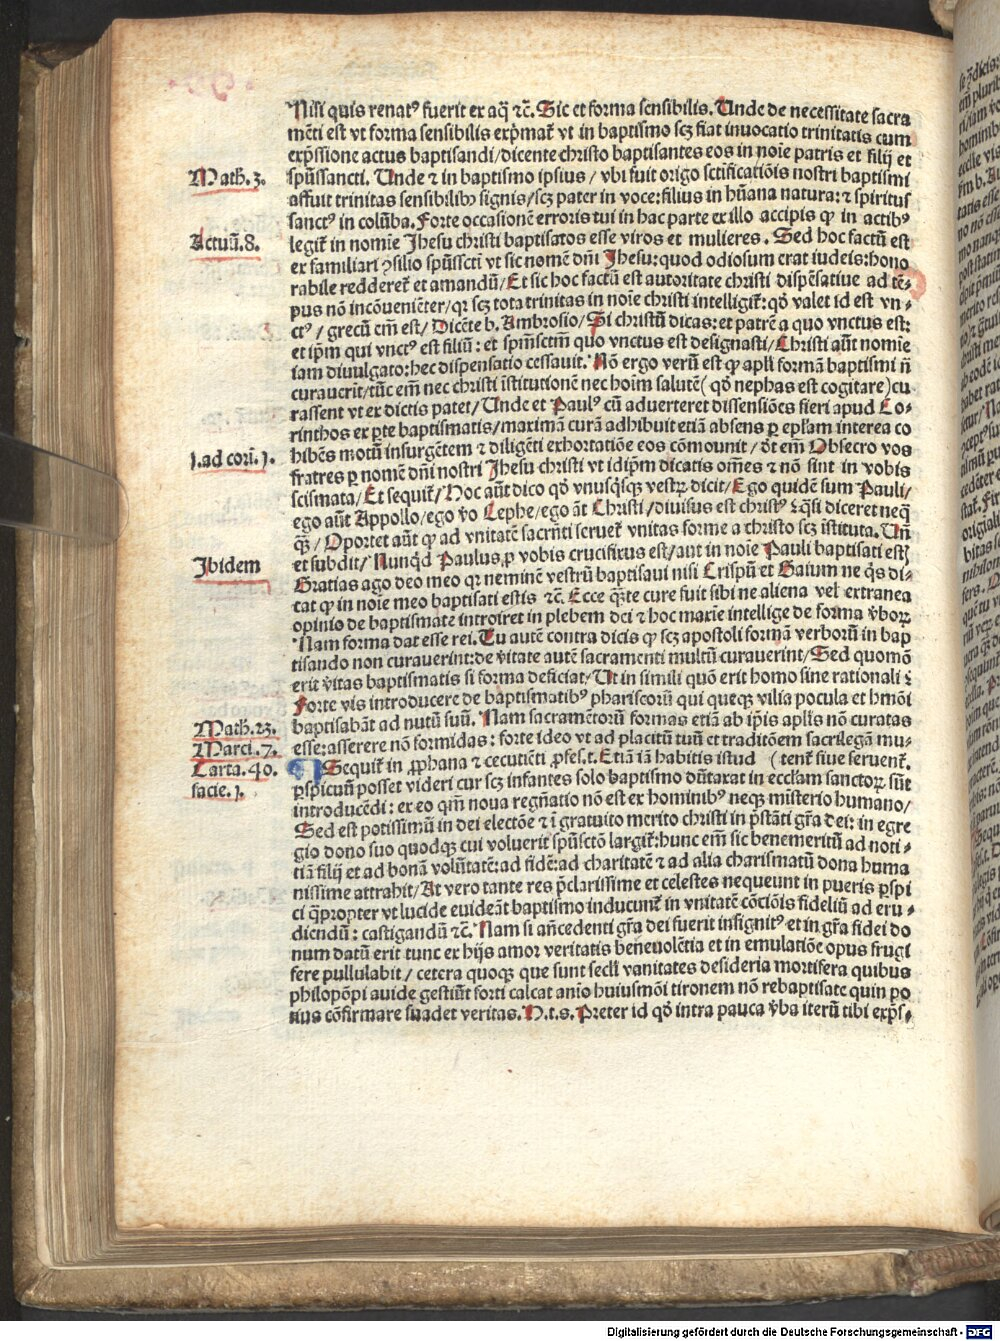 Nisi quis renatꝰ fuerit ex aq̄ ⁊c̄. Sic et forma sensibilis. Unde de necessitate sacra
mēti est vt forma sensibilis exp̄mat᷑ vt in baptismo scꝫ fiat inuocatio trinitatis cum
exp̄ssione actus baptisandi/dicente christo baptisantes eos in noīe patris et filij et
Math. 3. sp̄ussancti. Unde ⁊ in baptismo ipsius / vbi fuit origo sctificatiōis nostri baptismi
affuit trinitas sensibilibꝫ signis/scꝫ pater in voce: filius in hūana natura: ⁊ spiritus
sanctꝰ in colūba. Forte occasionē erroris tui in hac parte ex illo accipis ꝙ in actibꝰ
Actuū. 8. legit᷑ in nomīe Jhesu christi baptisatos esse viros et mulieres. Sed hoc factū est
ex familiari ꝯsilio sp̄ussctī vt sic nomē dn̄i Jhesu: quod odiosum erat iudeis: hono
rabile redderet᷑ et amandū/Et sic hoc factū est autoritate christi dispēsatiue ad tē⸗
pus nō incōueniēter/qꝛ scꝫ tota trinitas in noīe christi intelligit᷑: qd̄ valet id est vn⸗
ctꝰ / grecū em̄ est/ Dicēte b. Ambrosio/Si christū dicas: et patrē a quo vnctus est:
et ip̄m qui vnctꝰ est filiū: et sp̄msctm̄ quo vnctus est designasti/Christi aūt nomīe
iam diuulgato: hec dispensatio cessauit. Nō ergo verū est ꝙ apl̄i formā baptismi n̄
curauerit/tūc em̄ nec christi īstitutionē nec hoīm salutē (qd̄ nephas est cogitare)cu
rassent vt ex dictis patet/Unde et Paulꝰ cū aduerteret dissensiōes fieri apud Co⸗
rinthos ex ꝑte baptismatis/maximā curā adhibuit etiā absens ꝑ epl̄am interea co
j. ad cori. j. hibēs motū insurgētem ⁊ diligēti exhortatiōe eos cōmounit / dt̄ em̄ Obsecro vos
fratres ꝑ nomē dn̄i nostri Jhesu christi vt idip̄m dicatis om̄es ⁊ nō sint in vobis
scismata/Et sequit᷑/Hoc aūt dico qd̄ vnusqꝫqꝫ vestrꝝ dicit/Ego quidē sum Pauli/
ego aūt Appollo/ego v̄o Cephe/ego āt Christi/diuisus est christꝰ
Oportet aūt ꝙ ad vnitatē sacrn̄ti seruet᷑ vnitas forme a christo scꝫ īstituta. Un̄
Jbidem et subdit/ Nunqd̄ Paulus ꝓ vobis crucifixus est/aut in noīe Pauli baptisati est
Gratias ago deo meo qꝛ neminē vestrū baptisaui nisi Crispū et Gaium ne qs̄ di⸗
cat ꝙ in noīe meo baptisati estis ⁊c̄. Ecce q̄nte cure fuit sibi ne aliena vel extranea
opinio de baptismate introiret in plebem dei ⁊ hoc maxīe intellige de forma v̄borꝝ
Nam forma dat esse rei. Tu autē contra dicis ꝙ scꝫ apostoli formā verborū in bap
tisando non curauerint: de v̄itate autē sacramenti multū curauerint/Sed quomō
erit v̄itas baptismatis si forma deficiat/Ut in simili quō erit homo sine rationali
Forte vis introducere de baptismatibꝰ phariseorū qui queqꝫ vilia pocula et hmōi
Math. 23. baptisabāt ad nutū suū. Nam sacramētorū formas etiā ab ip̄is apl̄is nō curatas
Marci. 7. esse: asserere nō formidas: forte ideo vt ad placitū tuū et traditōem sacrilegā mu⸗
Carta. 40. ¶ Sequit᷑ in ꝓphana ⁊ cecutiēti ꝓfes. t. Etiā iā habitis istud (tent᷑ siue seruent᷑.
facie. j. ꝑspicuū posset videri cur scꝫ infantes solo baptismo dūtaxat in eccl̄am sanctorꝝ sūt
introducēdi: ex eo qm̄ noua regn̄atio nō est ex hominibꝰ neqꝫ misterio humano/
Sed est potissimū in dei electōe ⁊ ī gratuito merito christi in p̄stāti gr̄a dei: in egre
gio dono suo quodqꝫ cui voluerit sp̄usctō largit᷑: hunc em̄ sic benemeritū ad noti⸗
tiā filij et ad bonā volūtatē: ad fidē: ad charitatē ⁊ ad alia charismatū dona huma
nissime attrahit/At vero tante res p̄clarissime et celestes nequeunt in pueris ꝑspi
ci q̄propter vt lucide euideāt baptismo inducunt᷑ in vnitatē cōciōis fideliū ad eru⸗
diendū: castigandū ⁊c̄. Nam si an̄cedenti gr̄a dei fuerit insignitꝰ et in gr̄a fidei do
num datū erit tunc ex hijs amor veritatis beneuolētia et in emulatiōe opus frugi
fere pullulabit / cetera quoqꝫ que sunt secl̄i vanitates desideria mortifera quibus
philopōpi auide gestiūt forti calcat anīo huiusmōi tironem nō rebaptisate quin po
tius cōfirmare suadet veritas. H. t. s. Preter id qd̄ intra pauca v̄ba iterū tibi exp̄s⸗
Digitalisierung gefördert durch die Deutsche Forschungsgemeinschaft - DFG